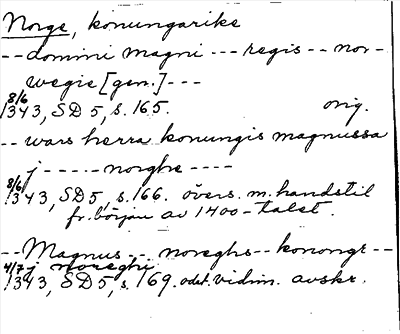 Norge, konungarike
-- domini magni --- regis -- nor-
wegie [gen.] ---
8/6 1343, SD 5, s. 165. orig.
-- wars herra konungis magnussa
j ----- norghe ----
8/6 1343, SD 5, s. 166. övers. m. handstil
fr. början av 1400-talet.
-- Magnus -- noreghs -- konongr --
j noreghi
4/7 1343, SD 5, s. 169. odat. vidim. avskr.